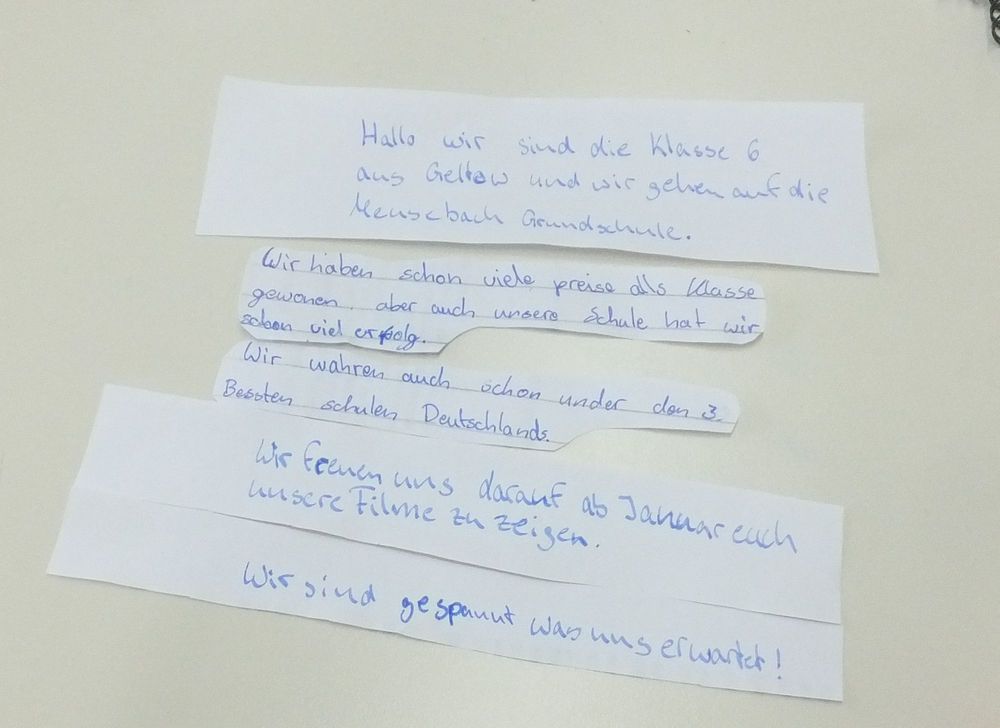 Hallo wir sind die Klasse 6
aus Geltow und wir gehen auf die
Meusebach Grundschule.
Wir haben schon viele preise als Klasse
gewonen. aber auch unsere Schule hat wir
schon viel erfolg.
Wir wahren auch schon under den 3.
Bessten schulen Deutschlands.
Wir freuen uns darauf ab Januar euch
unsere Filme zu zeigen.
Wir sind gespannt was uns erwartet!